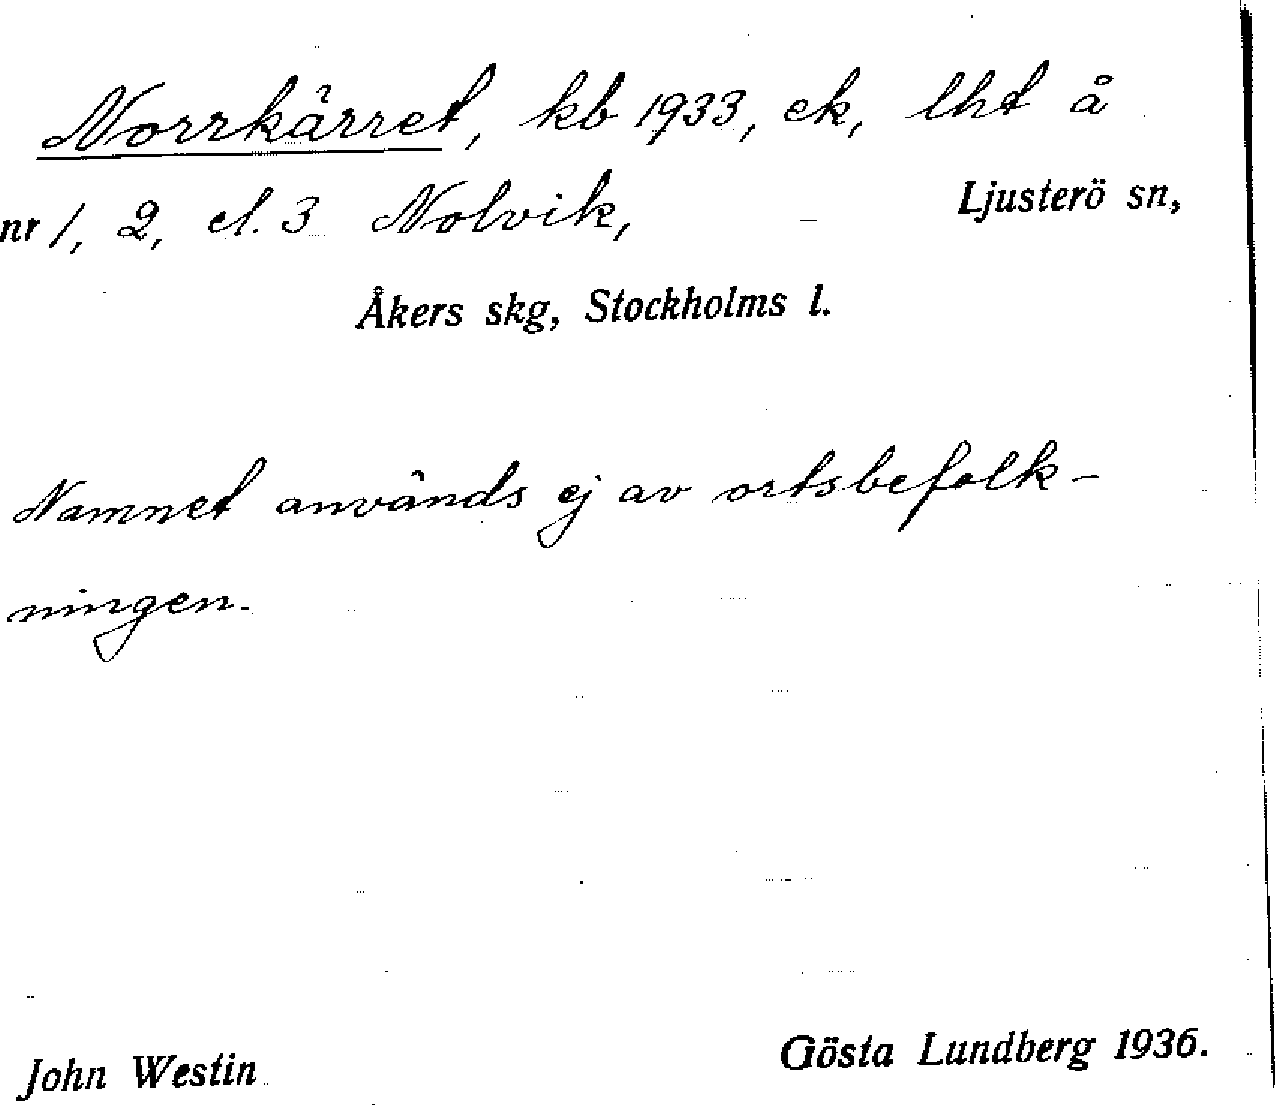 Norrkärret, kb 1933, ek, lht å
nr 1, 2, el. 3 Nolvik, Ljusterö sn,
Åkers skg, Stockholms l.
Namnet används ej av ortsbefolk-
ningen.
John Westin Gösta Lundberg 1936.